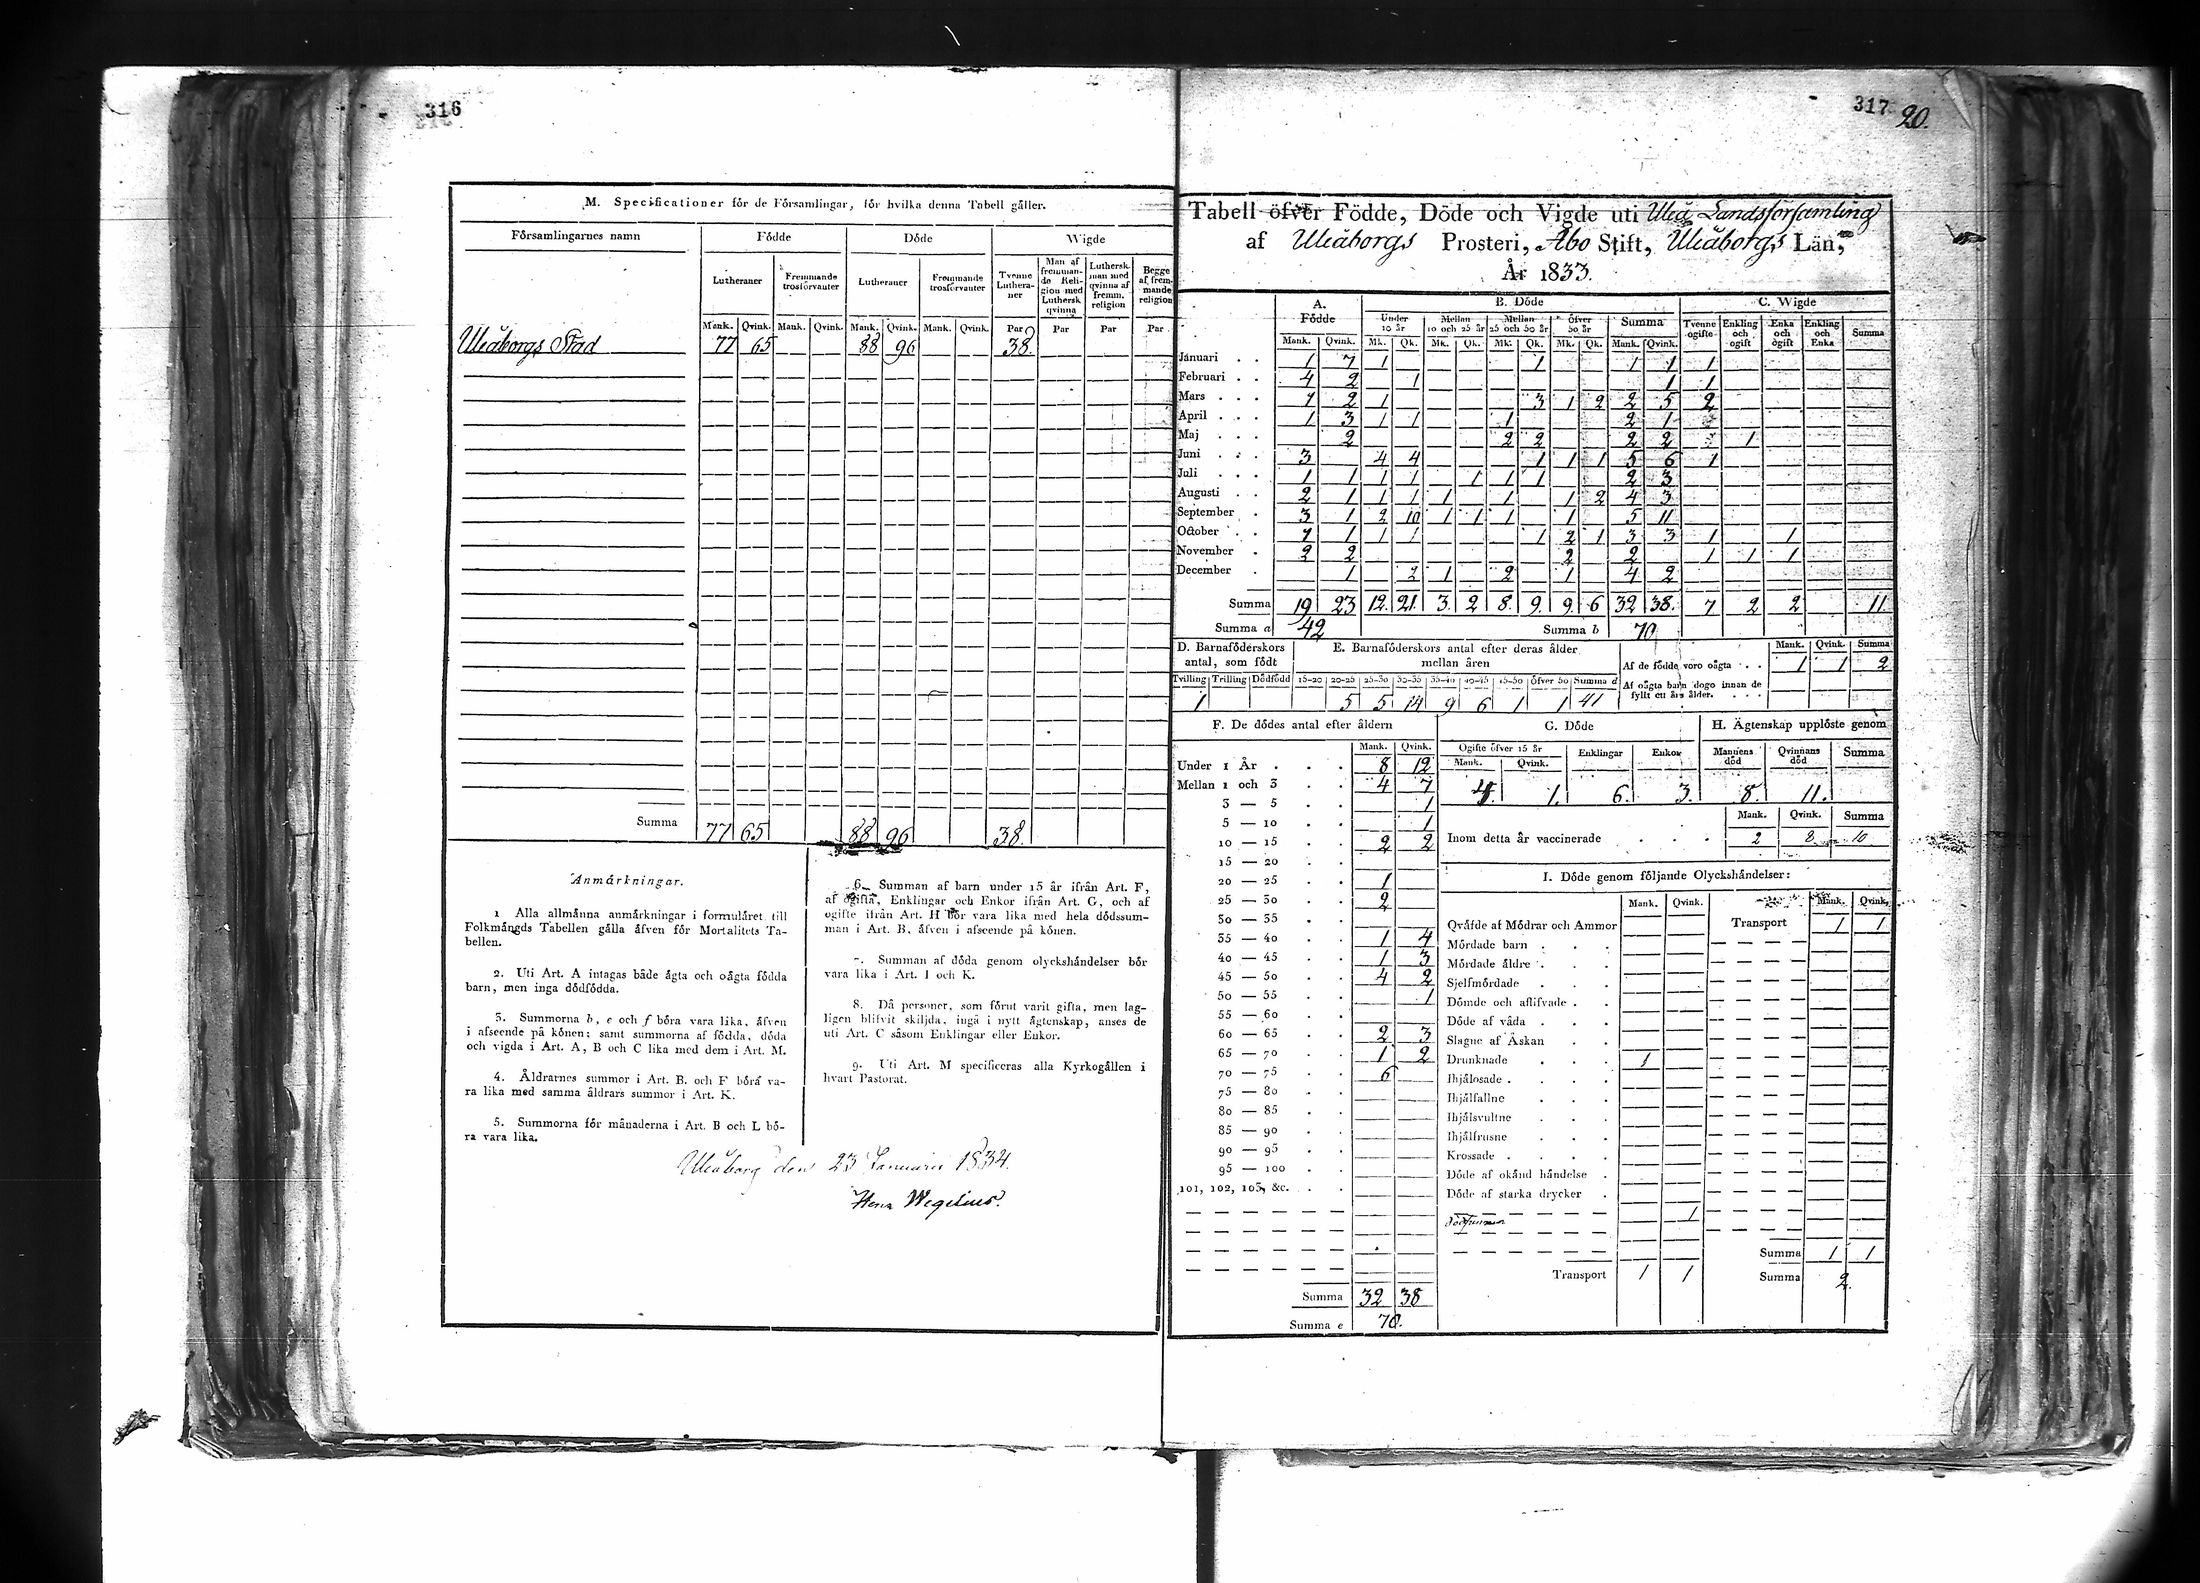 316
M. Specificationer för de Församlingar, för hvilka denna Tabell gäller.
Församlingarnes namn Födde Döde Wigde
Lutheraner Fremmande trosförvanter Lutheraner Fremmande trosförvanter Tvenne Lutheraner Man af fremmande Religion med Luthersk qvinna Luthersk man med qvinna af fremm. religion Begge af fremmande religion
Mank. Qvink. Mank. Qvink. Mank. Qvink. Mank. Qvink. Par Par Par Par
Uleåborgs Stad 77 65 88 96 38.
Summa 77 65 88 96 38.
Anmärkningar.
1 Alla allmänna anmärkningar i formuläret till
Folkmängds Tabellen gälla äfven för Mortalitets Ta-
bellen.
2. Uti Art. A intagas både ägta och oägta födda
barn, men inga dödfödda.
3. Summorna b, e och f böra vara lika, äfven
i afseende på könen; samt summorna af födda, döda
och vigda i Art. A, B och C lika med dem i Art. M.
4. Åldrarnes summor i Art. B. och F böra va-
ra lika med samma åldrars summor i Art. K.
5. Summorna för månaderna i Art. B och L bö-
ra vara lika.
6. Summan af barn under 15 år ifrån Art. F,
af ogifta, Enklingar och Enkor ifrån Art. G, och af
ogifte ifrån Art. H bör vara lika med hela dödssum-
man i Art. B, äfven i afseende på könen.
7. Summan af döda genom olyckshändelser bör
vara lika i Art. I och K.
8. Då personer, som förut varit gifta, men lag-
ligen blifvit skiljda, ingå i nytt ägtenskap, anses de
uti Art. C såsom Enklingar eller Enkor.
9. Uti Art. M specificeras alla Kyrkogällen i
hvart Pastorat.
Uleåborg den 23 Januarii 1834.
Henr Wegelius.
317
20.
Tabell öfver Födde, Döde och Vigde uti Uleå Landsförsamling
af Uleåborgs Prosteri, Åbo Stift, Uleåborgs Län,
År 1833.
A. Födde B. Döde C. Wigde
Under 10 år Mellan 10 och 25 år Mellan 25 och 50 år Öfver 50 år Summa Tvenne ogifte Enkling och ogift Enka och ogift Enkling och Enka Summa
Mank. Qvink. Mk. Qk. Mk. Qk. Mk. Qk. Mk. Qk. Mank. Qvink.
Januari 1 7 1 1 1 1 1
Februari 4 2 1 1 1
Mars 1 2 1 3 1 2 2 5 2
April 1 3 1 1 1 2 1
Maj 2 2 2 2 2 1
Juni 3 4 4 1 1 1 5 6 1
Juli 1 1 1 1 1 1 1 2 3
Augusti 2 1 1 1 1 1 1 2 4 3
September 3 1 2 10 1 1 1 1 5 11
October 1 1 1 1 1 2 1 3 3 1 1
November 2 2 2 2 1 1 1
December 1 2 1 2 1 4 2
Summa 19 23 12. 21. 3. 2 8. 9. 9. 6 32 38. 7 2 2 11.
Summa a 42 Summa b 70
D. Barnaföderskors antal, som födt
Tvilling Trilling Dödfödd
1
E. Barnaföderskors antal efter deras ålder
mellan åren
15-20 20-25 25-30 30-35 35-40 40-45 45-50 Öfver 50 Summa d
5 5 14 9 6 1 1 41
Mank. Qvink. Summa
Af de födde voro oägta 1 1 2
Af oägta barn dogo innan de
fyllt ett års ålder.
F. De dödes antal efter åldern
Mank. Qvink.
Under 1 År 8 12
Mellan 1 och 3 4 7
3 — 5 1
5 — 10 1
10 — 15 2 2
15 — 20
20 — 25 1
25 — 30 2
30 — 35
35 — 40 1 4
40 — 45 1 3
45 — 50 4 2
50 — 55 1
55 — 60
60 — 65 2 3
65 — 70 1 2
70 — 75 6
75 — 80
80 — 85
85 — 90
90 — 95
95 — 100
101, 102, 103, &c.
Summa 32 38
Summa e 70.
G. Döde
Ogifte öfver 15 år Enklingar Enkor
Mank. Qvink.
1. 6. 3.
H. Ägtenskap upplöste genom
Mannens död Qvinnans död Summa
8. 11.
Mank. Qvink. Summa
Inom detta år vaccinerade 2 8 10
I. Döde genom följande Olyckshändelser:
Mank. Qvink. Mank. Qvink.
Qväfde af Mödrar och Ammor Transport 1 1
Mördade barn
Mördade äldre
Sjelfmördade
Dömde och aflifvade
Döde af våda
Slagne af Åskan
Drunknade 1
Ihjälosade
Ihjälfallne
Ihjälsvultne
Ihjälfrusne
Krossade
Döde af okänd händelse
Döde af starka drycker
1
Summa 1 1
Transport 1 1 Summa 2.